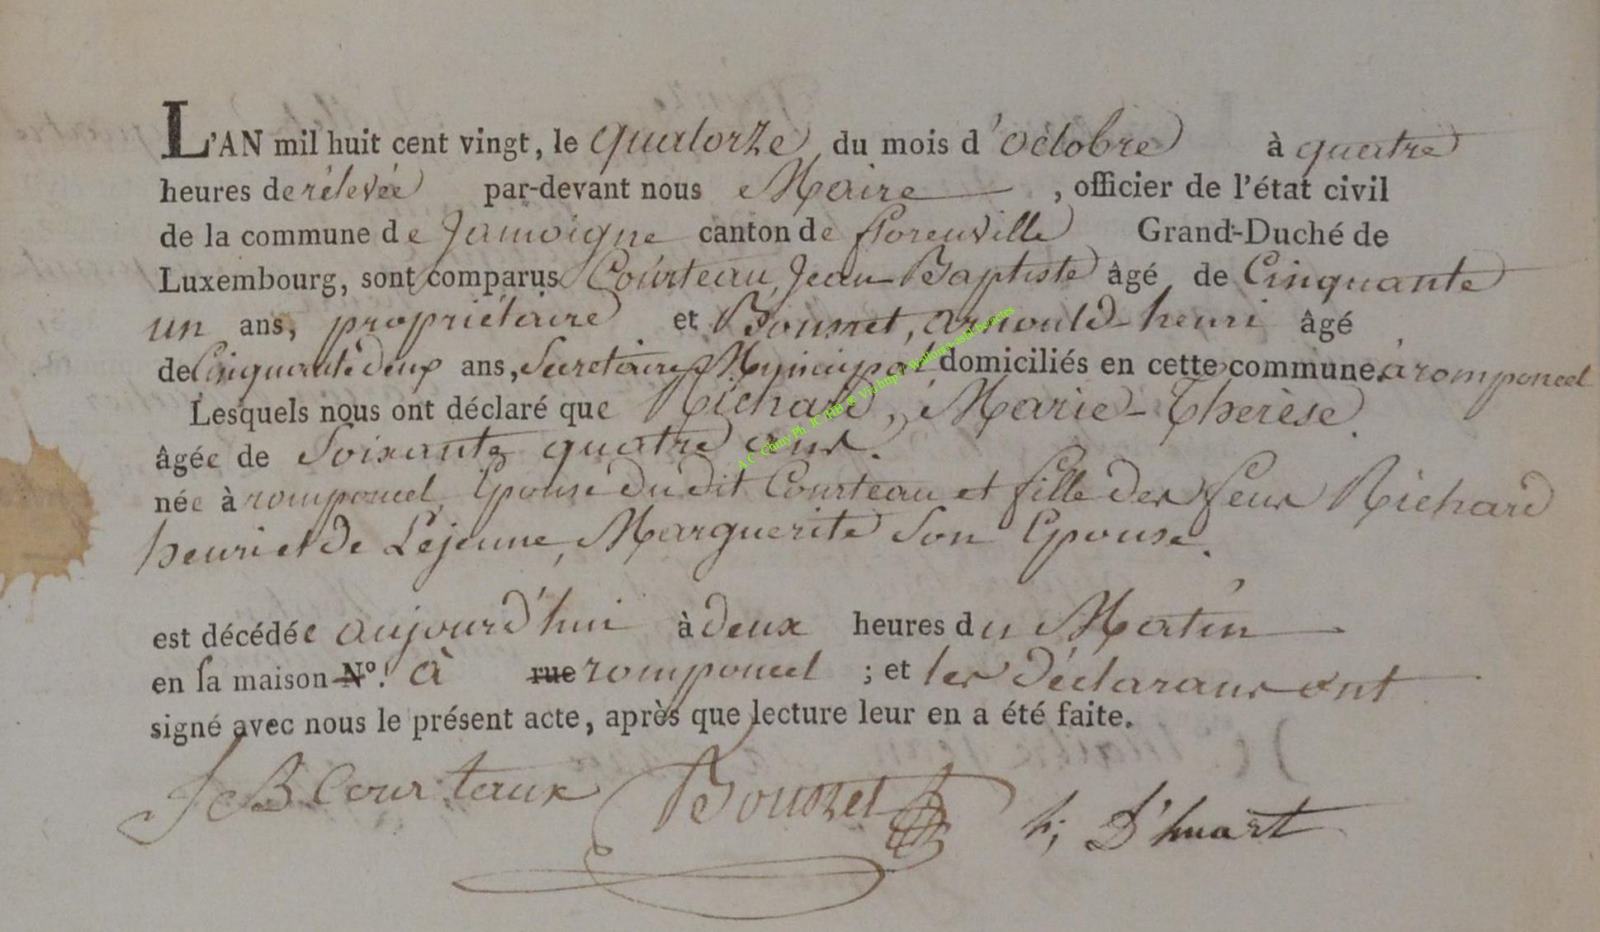 L'AN mil huit cent vingt, le quatorze du mois d'octobre à quatre
heures de rélevée par-devant nous Maire, officier de l'état civil
de la commune de Jamoigne canton de florenville Grand-Duché de
Luxembourg, sont comparus Courteau, Jean Baptiste âgé de Cinquante
un ans, propriétaire et Bousret, arnould-henri âgé
de Cinquante deux ans, Secretaire Municipal domiciliés en cette commune. à romponcel
Lesquels nous ont déclaré que Richard, Marie-Therèse.
âgée de Soixante quatre ans.
née à romponcel, Epouse du dit Courteau et fille des feus Richard
henri et de Lejeune, Marguerite Son Epouse.
est décédée aujourd'hui à deux heures du Matin
en sa maison N°. à rue romponcel ; et les déclarans ont
signé avec nous le présent acte, après que lecture leur en a été faite.
J B Courtaux Bousret h; D'huart